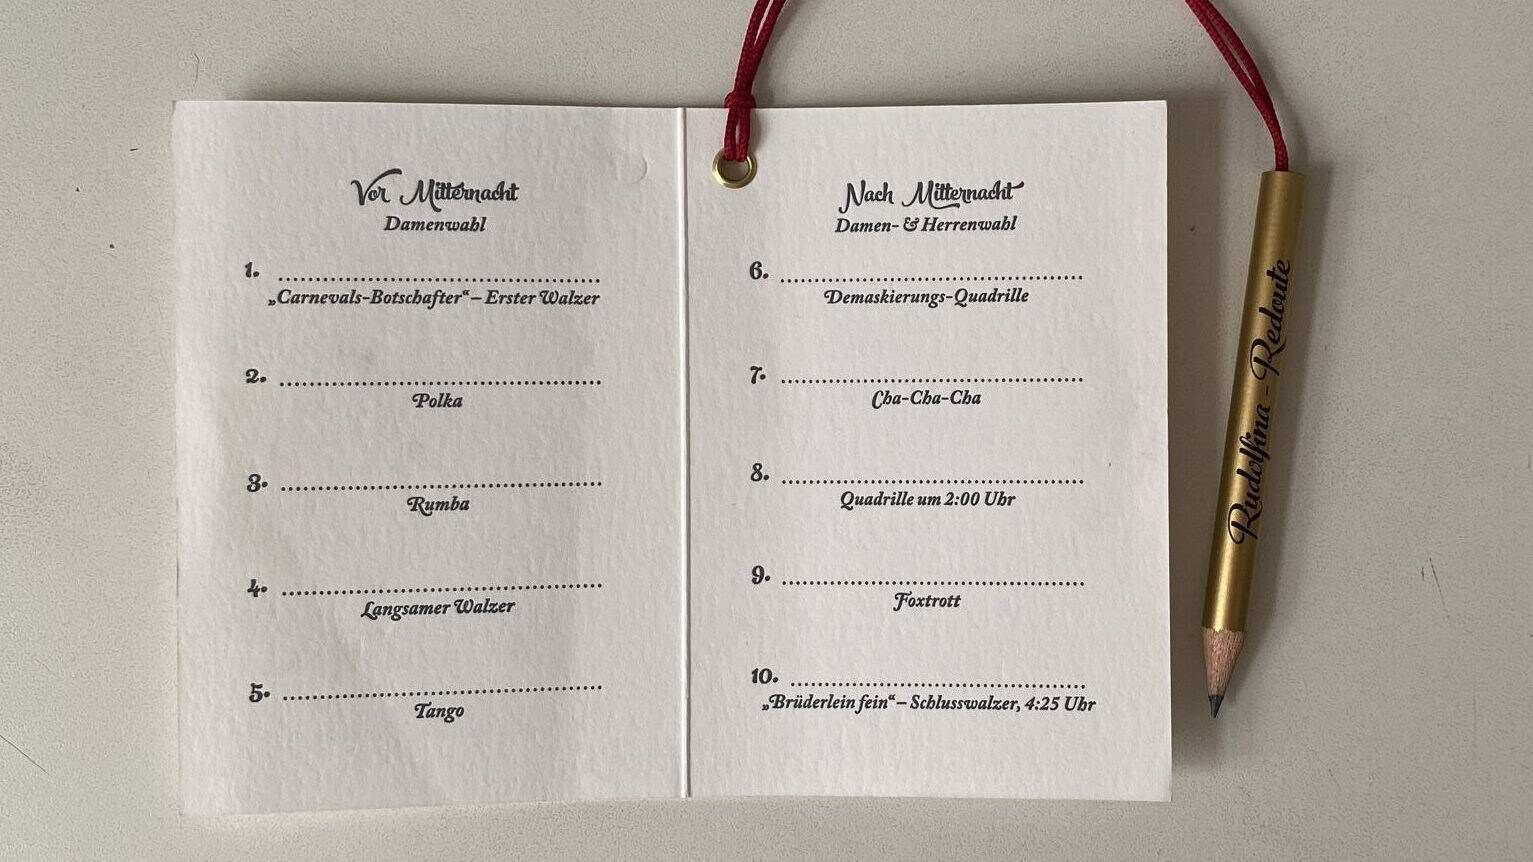 Vor Mitternacht
Damenwahl
1. ........................................
„Carnevals-Botschafter“ – Erster Walzer
2. ........................................
Polka
3. ........................................
Rumba
4. ........................................
Langsamer Walzer
5. ........................................
Tango
Nach Mitternacht
Damen- & Herrenwahl
6. ........................................
Demaskierungs-Quadrille
7. ........................................
Cha-Cha-Cha
8. ........................................
Quadrille um 2:00 Uhr
9. ........................................
Foxtrott
10. ........................................
„Brüderlein fein“ – Schlusswalzer, 4:25 Uhr
Rudolfina - Redoute